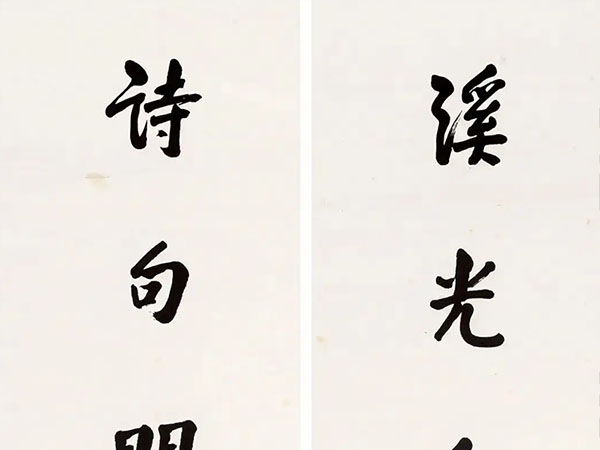 溪光
诗句